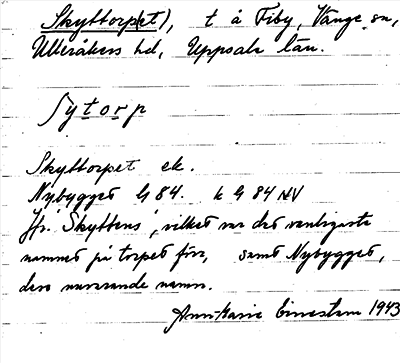 Skyttorp(et), t å Fiby, Vänge sn,
Ulleråkers hd, Uppsala län.
Sytorp
Skyttorpet ek.
Nybygget G 84. k G 84 NV
Jfr. Skyttens, vilket var det vanligaste
namnet på torpet förr, samt Nybygget,
dess nuvarande namn.
Ann-Marie 1943